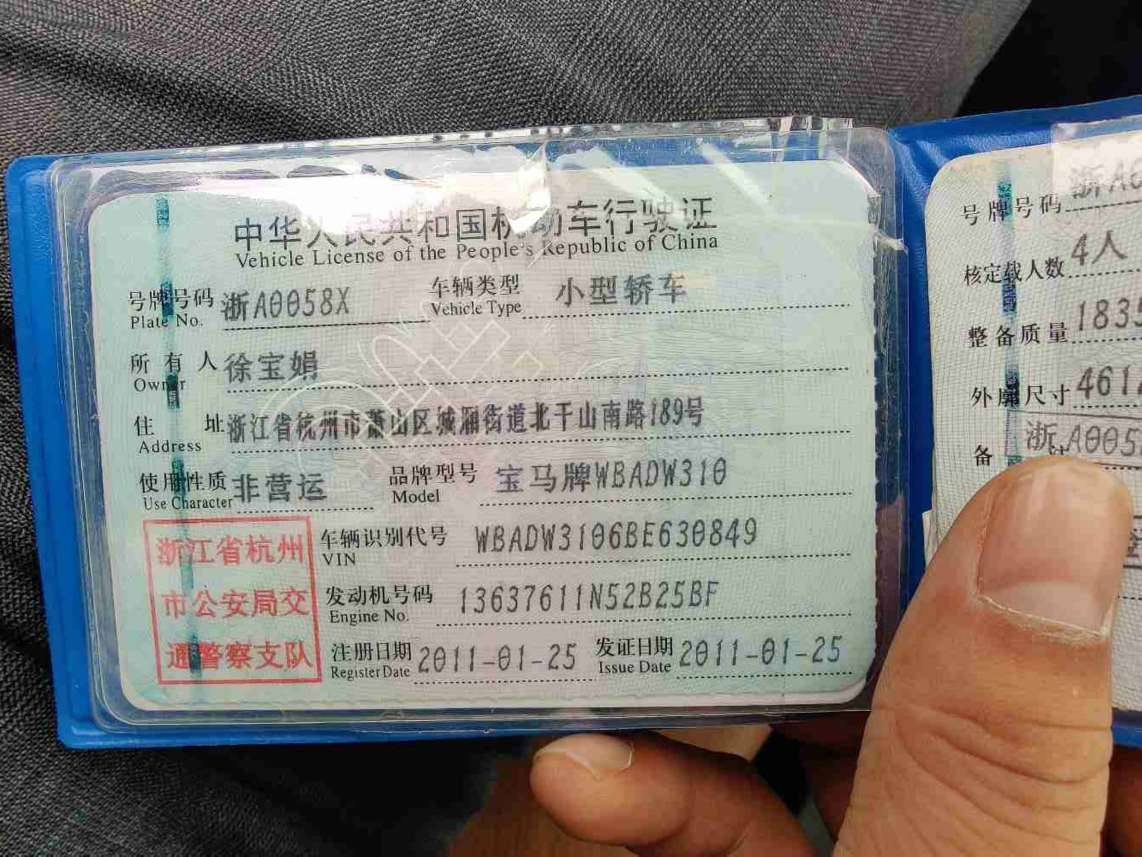 中华人民共和国机动车行驶证
Vehicle License of the People's Republic of China
号牌号码 浙A0058X 车辆类型 小型轿车
Plate No. Vehicle Type
所有人 徐宝娟
Owner
住址 浙江省杭州市萧山区城厢街道北干山南路189号
Address
使用性质 非营运 品牌型号 宝马牌WBADW310
Use Character Model
浙江省杭州
市公安局交
通警察支队
车辆识别代号 WBADW3106BE630849
VIN
发动机号码 13637611N52B25BF
Engine No.
注册日期 2011-01-25 发证日期 2011-01-25
Register Date Issue Date
号牌号码 浙A0
核定载人数 4人
整备质量 183
外廓尺寸 461
备 浙A005